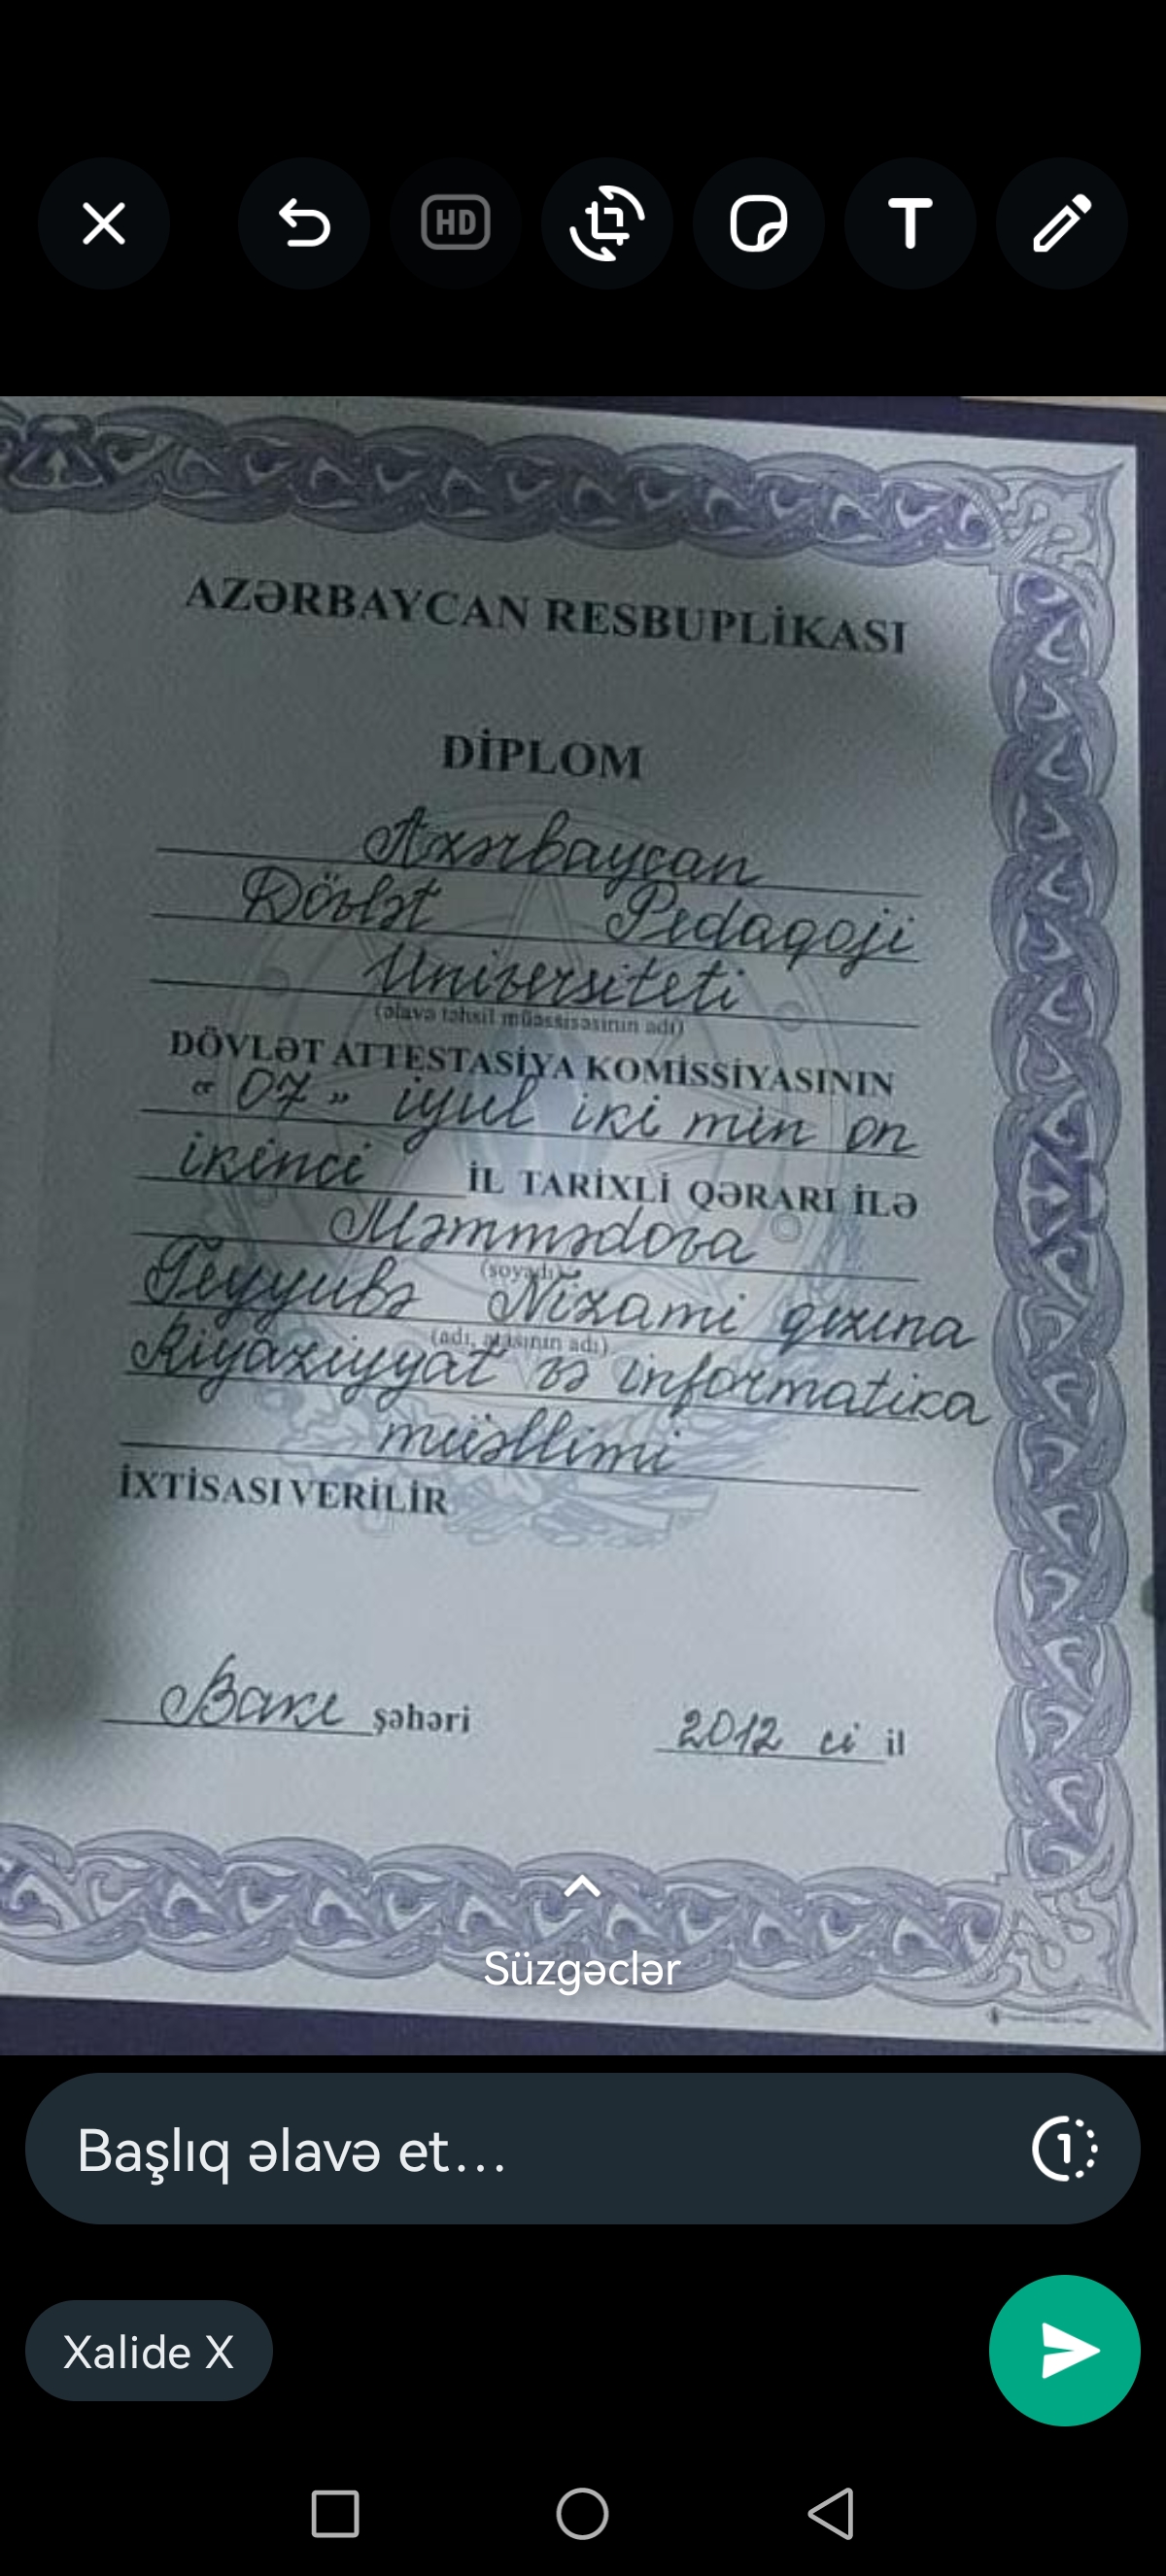 HD
T
AZƏRBAYCAN RESBUPLİKASI
DİPLOM
Azərbaycan
Dövlət Pedaqoji
Universiteti
(əlavə təhsil müəssisəsinin adı)
DÖVLƏT ATTESTASİYA KOMİSSİYASININ
“ 07 ” iyul iki min on
ikinci İL TARİXLİ QƏRARI İLƏ
Məmmədova
(soyadı)
Teyyubə Nizami qızına
(adı, atasının adı)
Riyaziyyat və informatika
müəllimi
İXTİSASI VERİLİR
Bakı şəhəri 2012 ci il
Süzgəclər
Başlıq əlavə et...
1
Xalide X